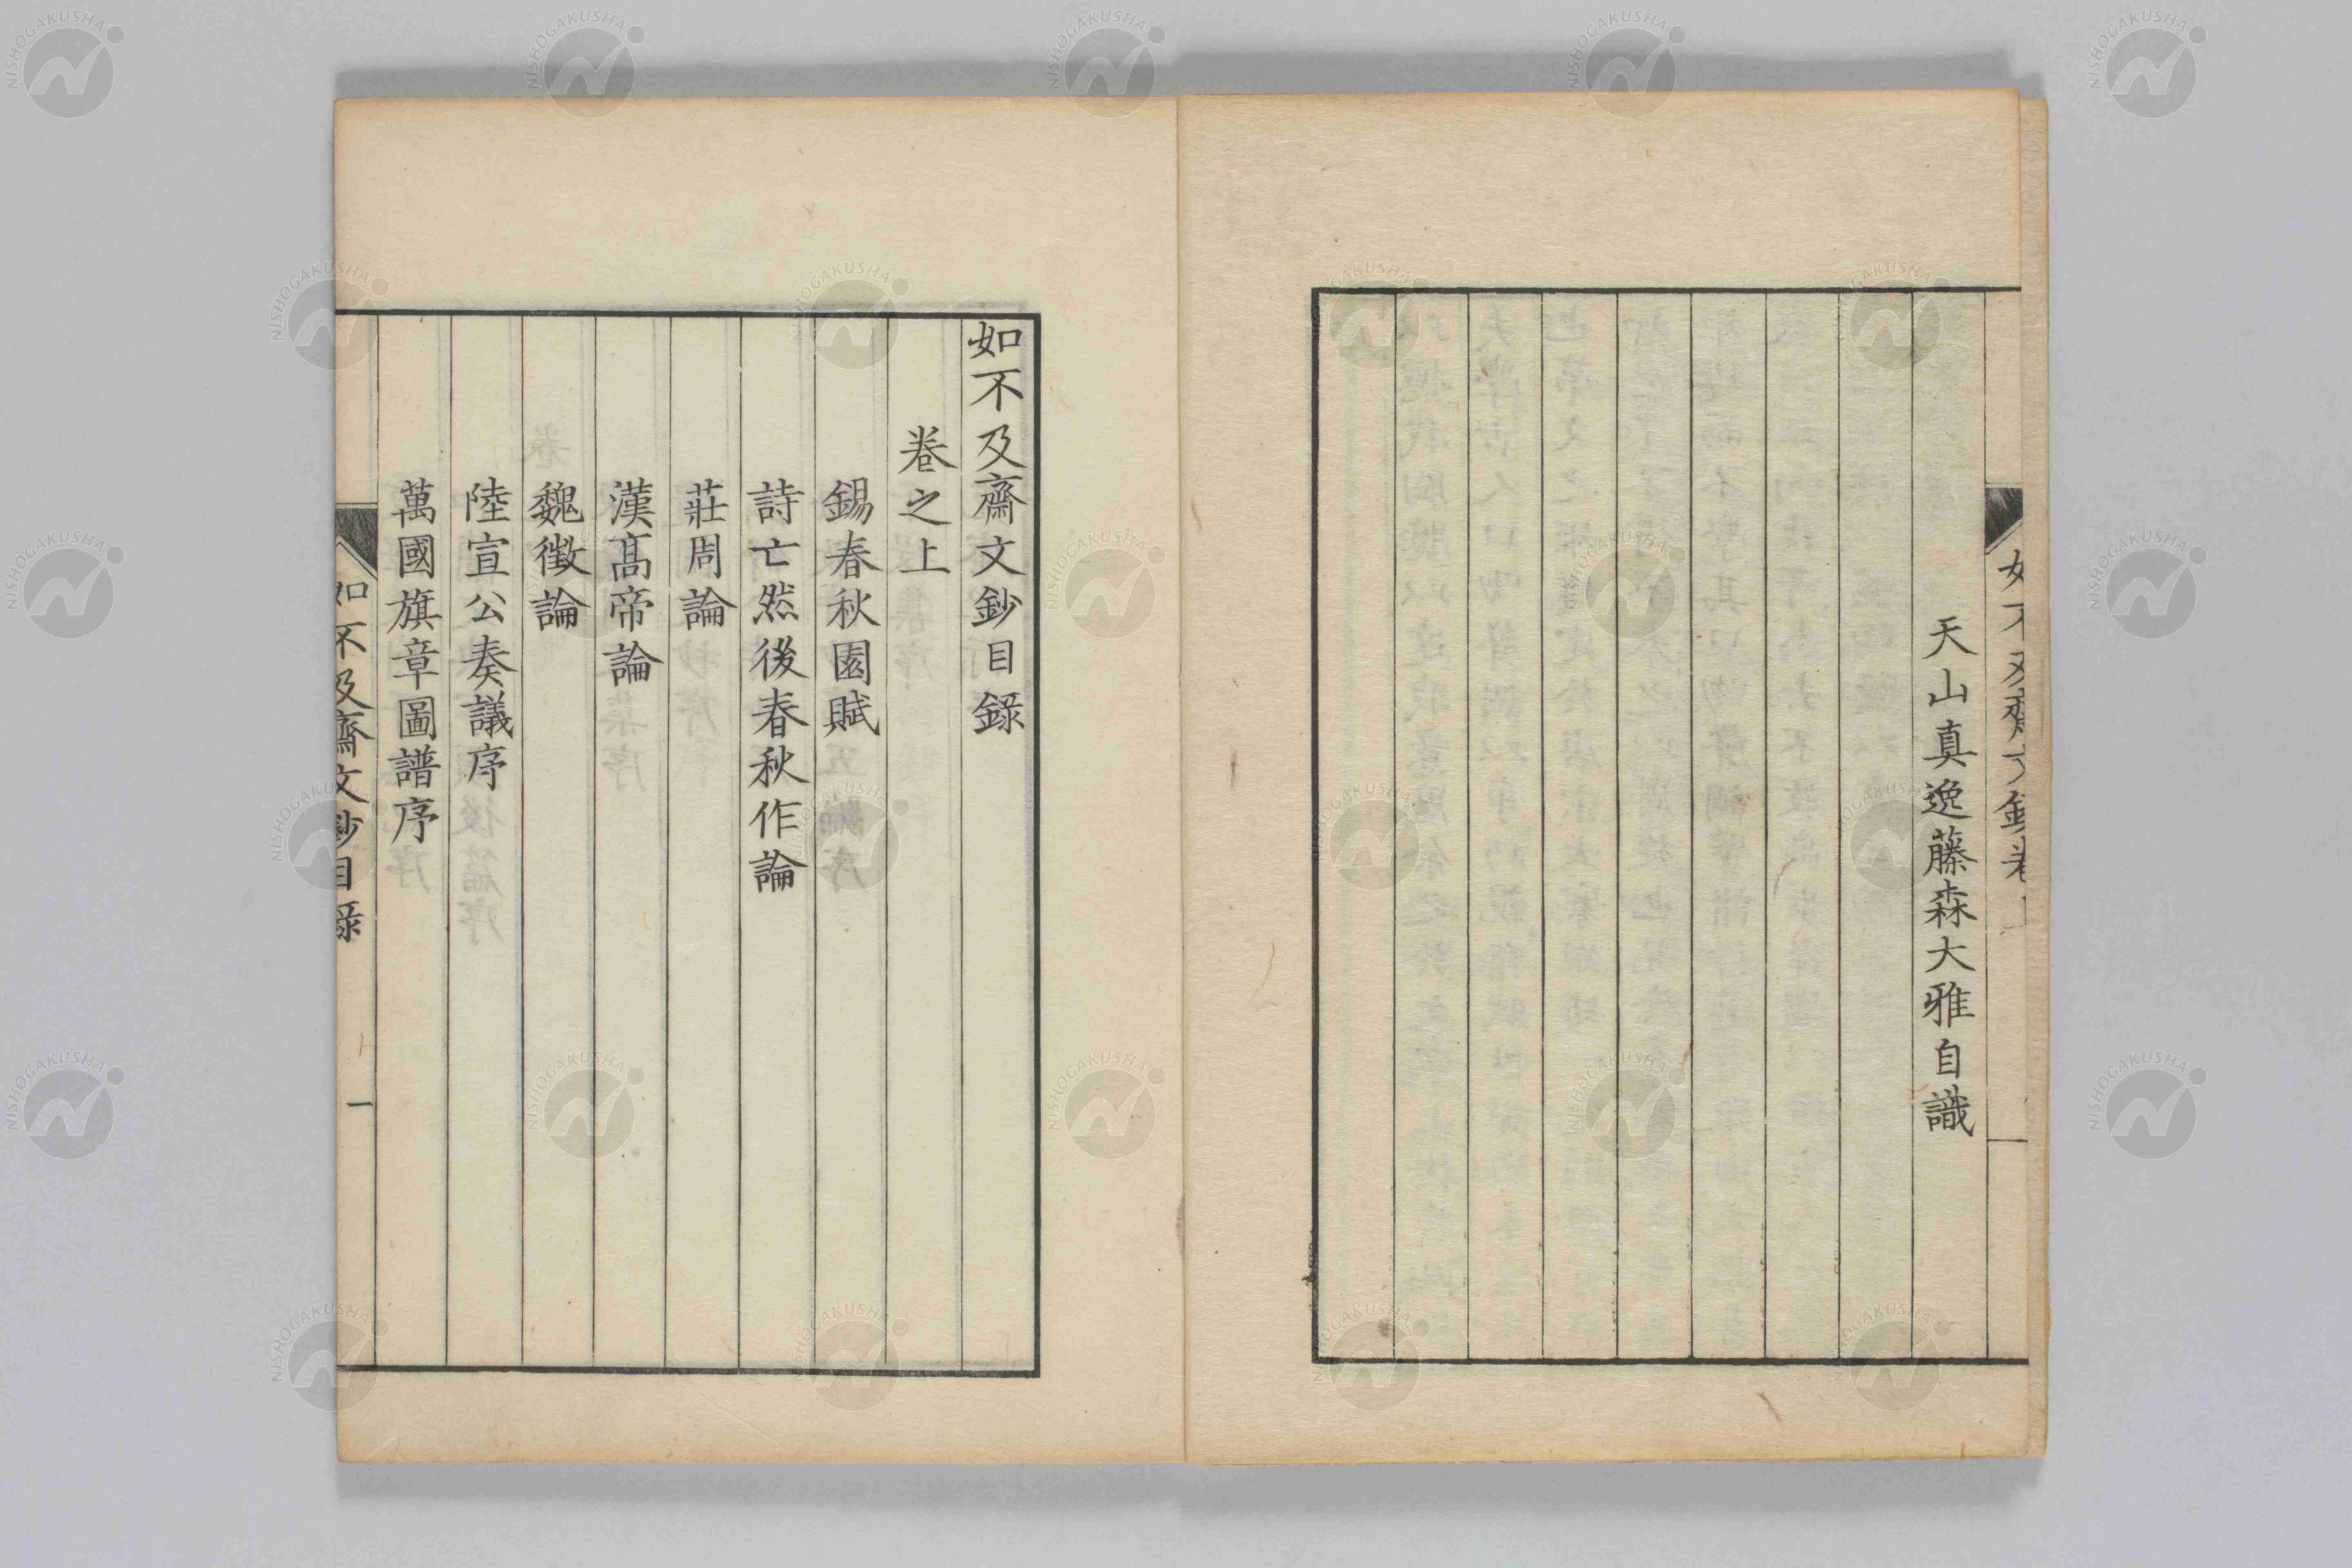 天山真逸藤森大雅自識
如不及齋文鈔目錄
卷之上
錫春秋園賦
詩亡然後春秋作論
莊周論
漢髙帝論
魏徵論
陸宣公奏議序
萬國旗章圖譜序
如不及齋文鈔目錄
一
NISHOGAKUSHA